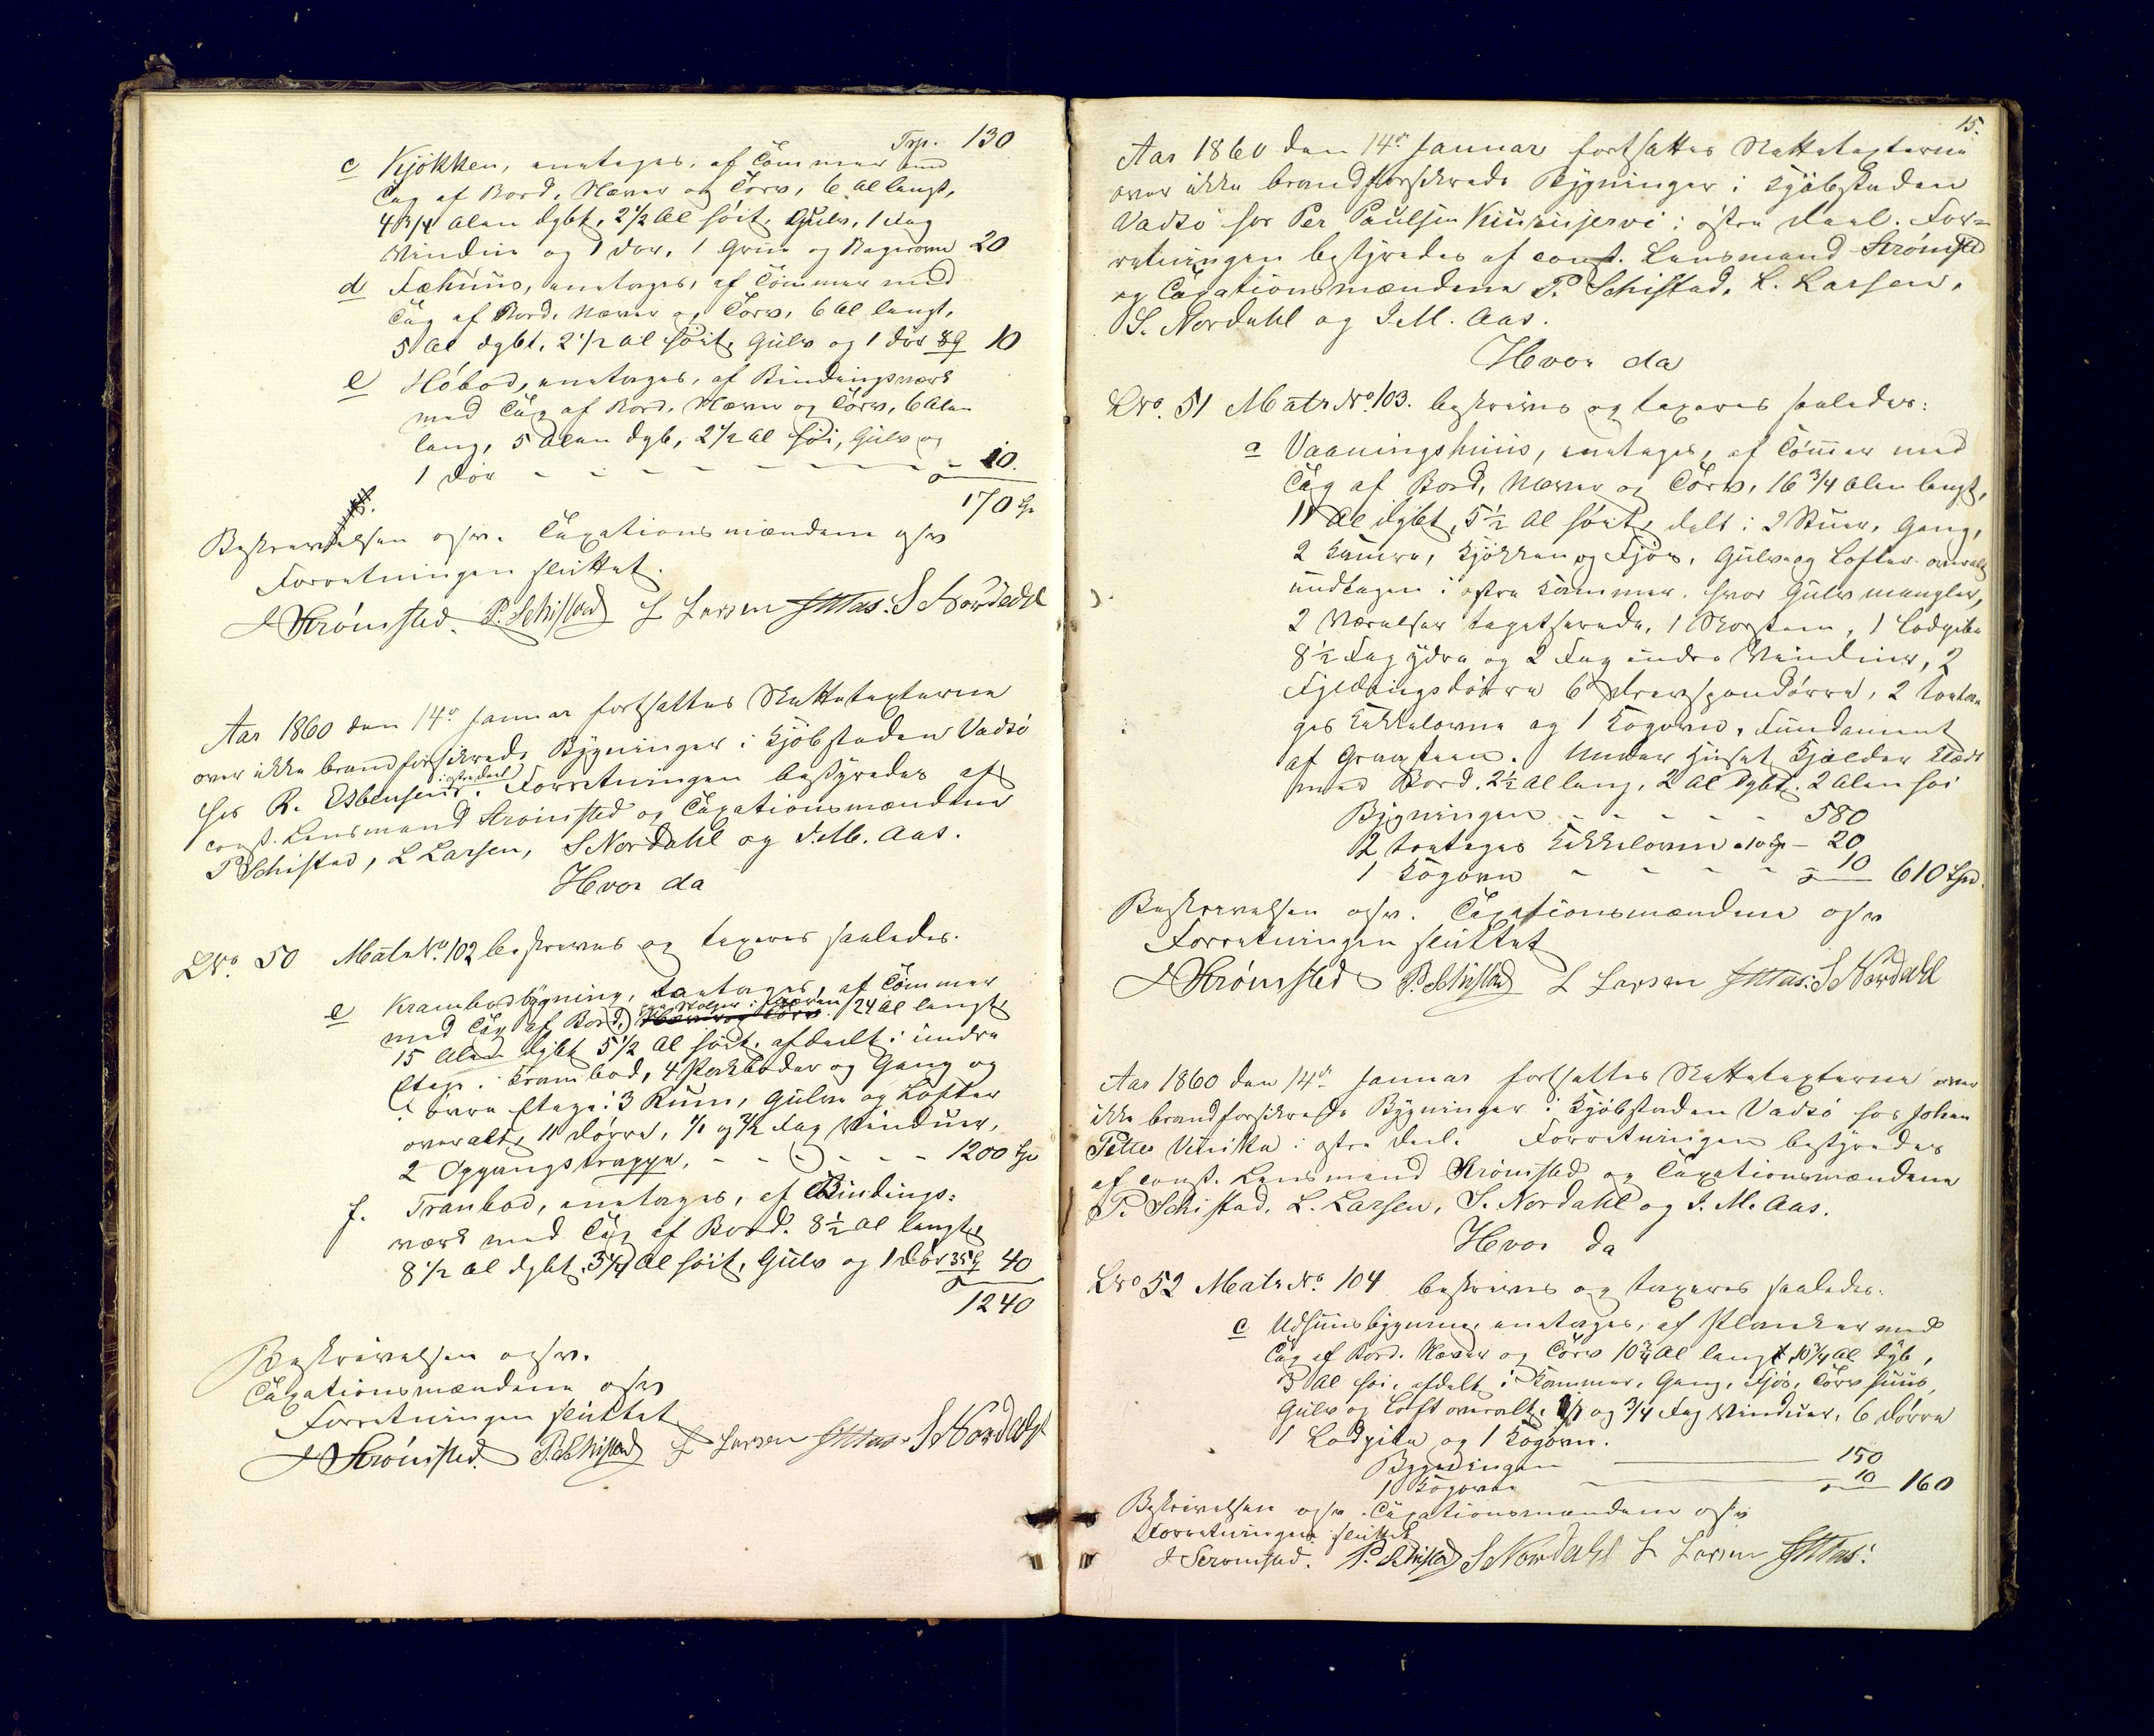 Trp. 130
c Kjøkken, eenetages, af Tømmer med
Tag af Bord, Næver og Törv, 6 Al langt,
4 3/4 Alen dybt, 2 1/2 Al höit, Gulv, 1 Fag
Vindue og 1 Dør, 1 Grue og Bagerovn 20
d Fæhuus, eenetages, af Tömmer med
Tag af Bord, Næver og Törv, 6 Al langt,
5 Al dybt, 2 1/2 Al höit, Gulv og 1 Dör 10
e Höbod, eenetages, af Bindingsværk
med Tag af Bord, Næver og Törv, 6 Alen
lang, 5 Alen dyb, 2 1/2 Al höi, Gulv og
1 Dör - - - - - - - - 10.
170
Beskrivelsen osv. Taxationsmændene osv
Forretningen sluttet.
Strömsted. P. Schistad L Larsen JMAas. S Nordahl
Aar 1860 den 14de Januar fortsattes Skattetaxterne
over ikke brandforsikrede Bygninger i Kjöbstaden Vadsö
i östre Deel
hos R. Esbensen. Forretningen bestyredes af
const. Lensmand Strömsted og Taxationsmændene
P Schistad, L Larsen, S Nordahl og J. M. Aas.
Hvor da
LNo. 50 Matr No. 102 beskreves og taxeres saaledes.
e Krambodbygning, toetages, af Tømmer
med Tag af Bord, Næver og Törv 24 Al langt
15 Alen dybt 5 1/2 Al höit, afdeelt i undre
Etage: Krambod, 4 Pakboder og Gang og
i övre Etage: 3 Rum, Gulve og Lofter
overalt, 11 Dörre, 1/1 og 7/2 Fag Vinduer,
2 Opgangstrappe, - - - - - 1200
f. Tranbod, eenetages, af Bindings-
værk med Tag af Bord. 8 1/2 Al langt
8 1/2 Al dybt, 3 1/4 Al höit, Gulv og 1 Dör 40
1240
Beskrivelsen osv.
Taxationsmændene osv
Forretningen sluttet
Strömsted. P. Schistad L Larsen JMAas. S Nordahl
15.
Aar 1860 den 14de Januar fortsattes Skattetaxterne
over ikke brandforsikrede Bygninger i Kjöbstaden
Vadsö hos Per Paulsen i östre Deel. For-
retningen bestyredes af const. Lensmand Strömsted
og Taxationsmændene P. Schistad, L. Larsen,
S. Nordahl og J. M. Aas.
Hvor da
LNo. 51 Matr No. 103. beskreves og taxeres saaledes:
a Vaaningshuus, eenetages, af Tömmer med
Tag af Bord, Næver og Törv, 16 3/4 Alen langt,
11 Al dybt, 5 1/2 Al höit, delt i 2 Stuer, Gang,
2 Kamre, Kjökken og Fjös, Gulve og Lofter overalt
undtagen i östre Kammer, hvor Gulv mangler,
2 Værelser tapetserede, 1 Skorsteen, 1 Lodpibe
8 1/2 Fag ydre og 2 Fag indre Vinduer, 2
Fyldingsdörre 6 Dörre, 2 toeta-
ges Kakkelovne og 1 Kogovn, Fundament
af Graasteen. Under Huset Kjelder klædt
med Bord, 2 1/2 Al lang, 2 Al dyb, 2 Alen höi
Bygningen - - - - - 580
2 toetages Kakkelovne a 10 - 20
1 Kogovn - - - - - 10 610
Beskrivelsen osv. Taxationsmændene osv
Forretningen sluttet
Strömsted P. Schistad L Larsen JMAas. S Nordahl
Aar 1860 den 14de Januar fortsattes Skattetaxterne over
ikke brandforsikrede Bygninger i Kjöbstaden Vadsö hos Johan
Petter Vinikka i östre Deel. Forretningen bestyredes
af const. Lensmand Strömsted og Taxationsmændene
P. Schistad, L. Larsen, S. Nordahl og J. M. Aas.
Hvor da
LNo 52 Matr No. 104 beskreves og taxeres saaledes.
c Udhuusbygning, eenetages, af Planker med
Tag af Bord, Næver og Törv 10 3/4 Al langt, 10 3/4 Al dyb,
3 Al höi, afdelt i Kammer, Gang, Fjös, Törvhuus,
Gulv og Loft overalt, 1/1 og 3/4 Fag Vinduer, 6 Dörre
1 Lodpibe og 1 Kogovn.
Bygningen 150
1 Kogovn 10 160
Beskrivelsen osv. Taxationsmændene osv
Forretningen sluttet
Strömsted. P. Schistad S Nordahl L Larsen JMAas.